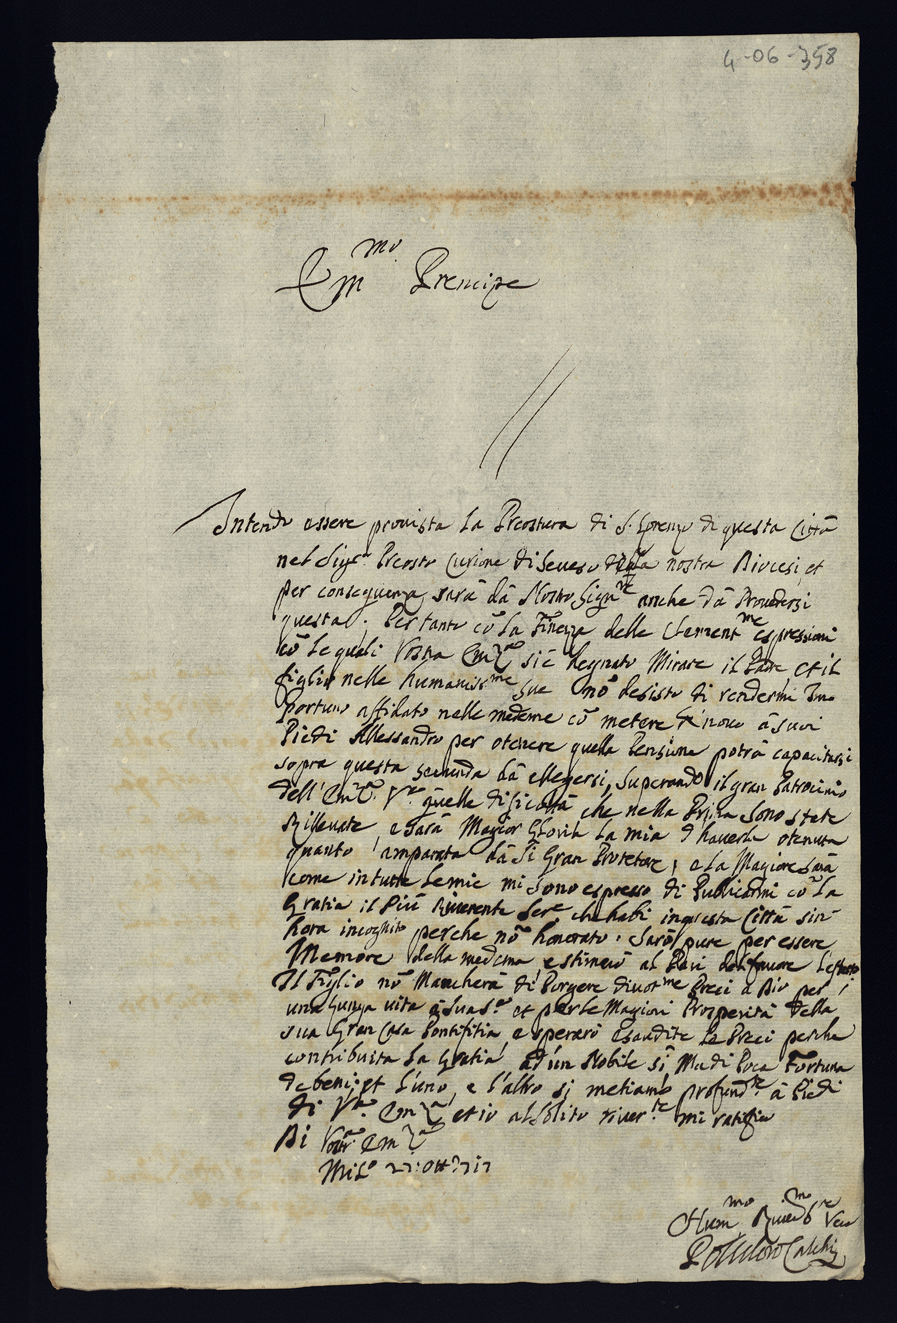 4-06-358
Em.mo Prencipe
Intendo essere provista la Prepostura di S. Lorenzo di questa Città
nel Sig.r Preosto Curione di Seveso della nostra Diocesi, et
per consequenza sarà dà Nostro Sign.re anche dà Provedersi
questa. Per tanto cõ la Finezza delle Clement.me espressioni
cõ le quali Vostra Em.za si è degnato Mirare il Padre et il
figlio nelle humaniss.me sue nõ desisto di rendermi Im
portuno affidato nelle medeme cõ metere di novo à suoi
Piedi Alessandro per otenere quella Pensione potrà capacitarsi
sopra questa seconda dà ellegersi, superando il gran Patrocinio
dell' Em.za V.ra quelle dificoltà che nella Prima sono state
Rillevate, e sarà Magior Gloria la mia d'haverla otenuta
quanto amparata dà Sì Gran Protetore, e la Magiore sarà
come in tutte le mie mi sono espresso di Publicarmi cõ la
Gratia il Più Riverente Ser.e che habi in questa Città sin
hora incognito perche nõ honorato. Sarò pure per essere
Memore della medema e stimerò al Pari del favore l'effetto
Il Figlio nõ Mancherà di Porgere divot.me Preci à Dio per
una Lunga vita à sua S.tà et per le Magiori Prosperità della
sua Gran Casa Pontifitia e sperarò Esaudite le Preci perche
contribuita la Gratia ad un Nobile sì, Ma di Poca Fortuna
de beni, et l'uno, e l'altro si metiamo profund.te à Piedi
di V.ra Em.za, et io al solito river.te mi ratifico
Di Vostr.a Em.za
Mil.o 27: Ott.e 717
Hum.mo River.mo Ser.re Vero
Polidoro Calchi